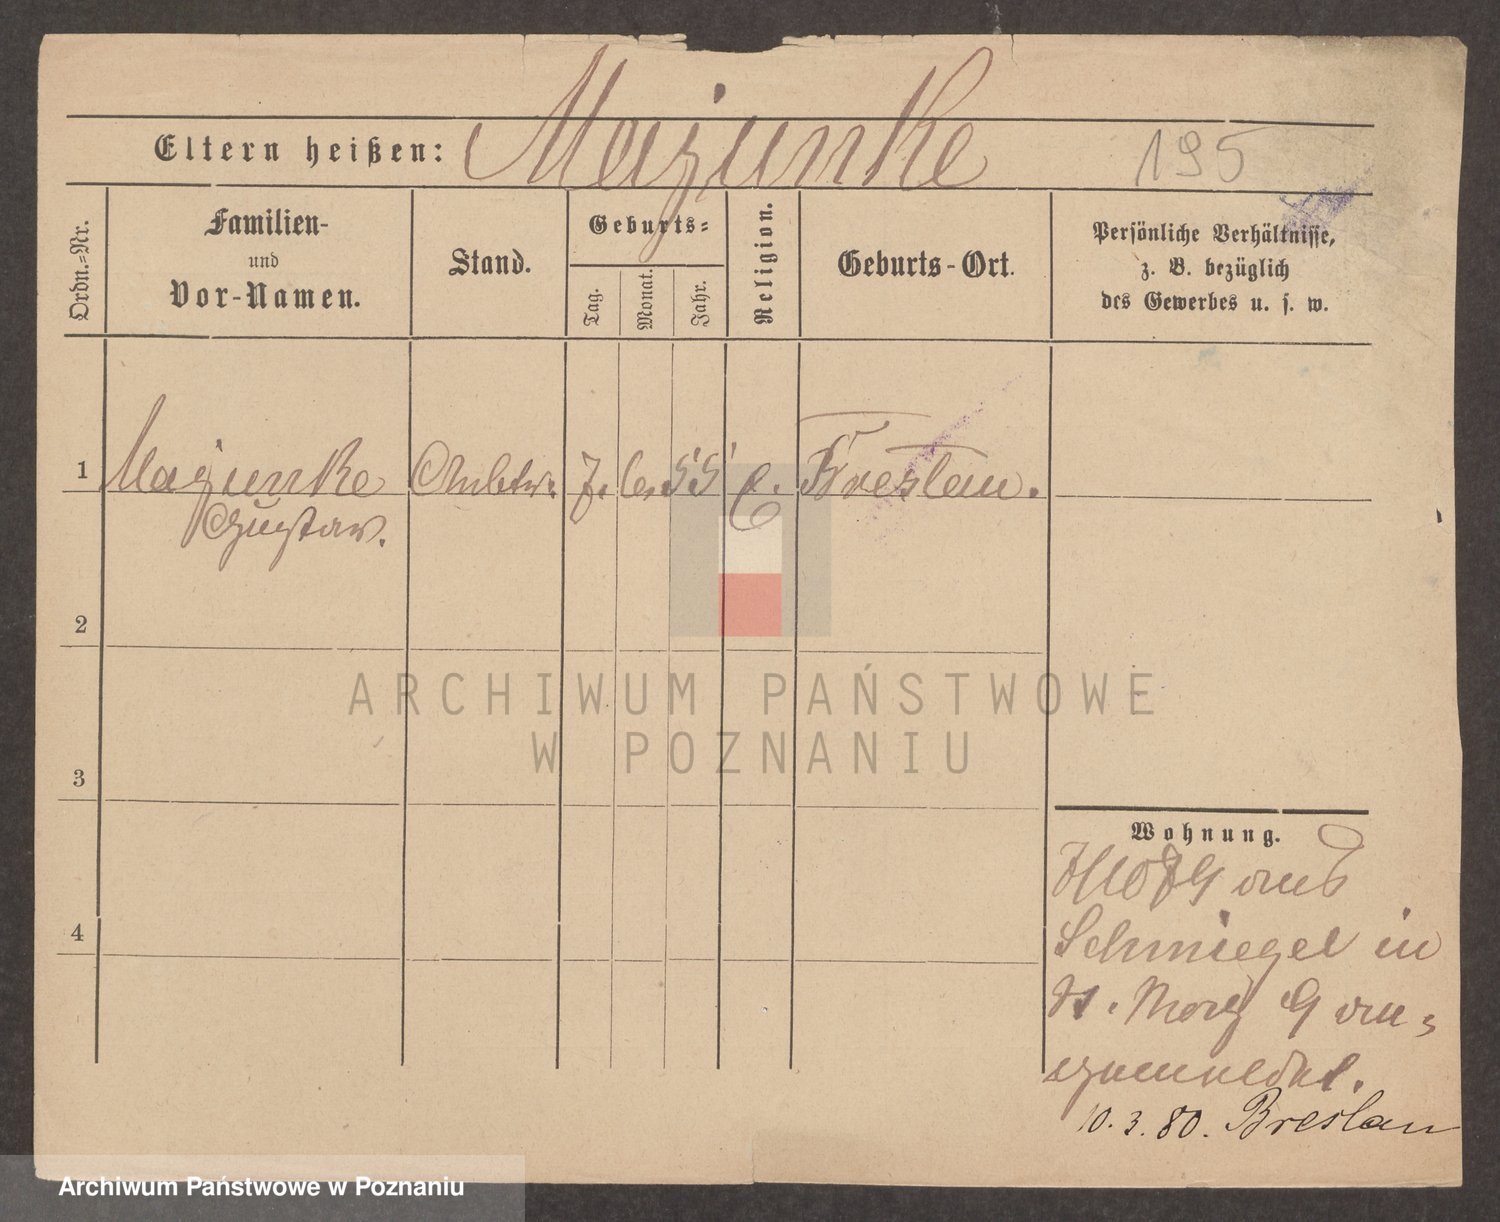 Eltern heißen: Majunke
195
Ordn.=Nr.
Familien-
und
Vor-Namen.
Stand.
Geburts=
Tag.
Monat.
Jahr.
Religion.
Geburts-Ort.
Persönliche Verhältnisse,
z. B. bezüglich
des Gewerbes u. s. w.
1
Majunke
Gustav.
7. 6. 55
Breslau.
2
3
4
Wohnung.
aus
Schmiegel in
St. 9
10. 3. 80. Breslau
ARCHIWUM PAŃSTWOWE
W POZNANIU
Archiwum Państwowe w Poznaniu